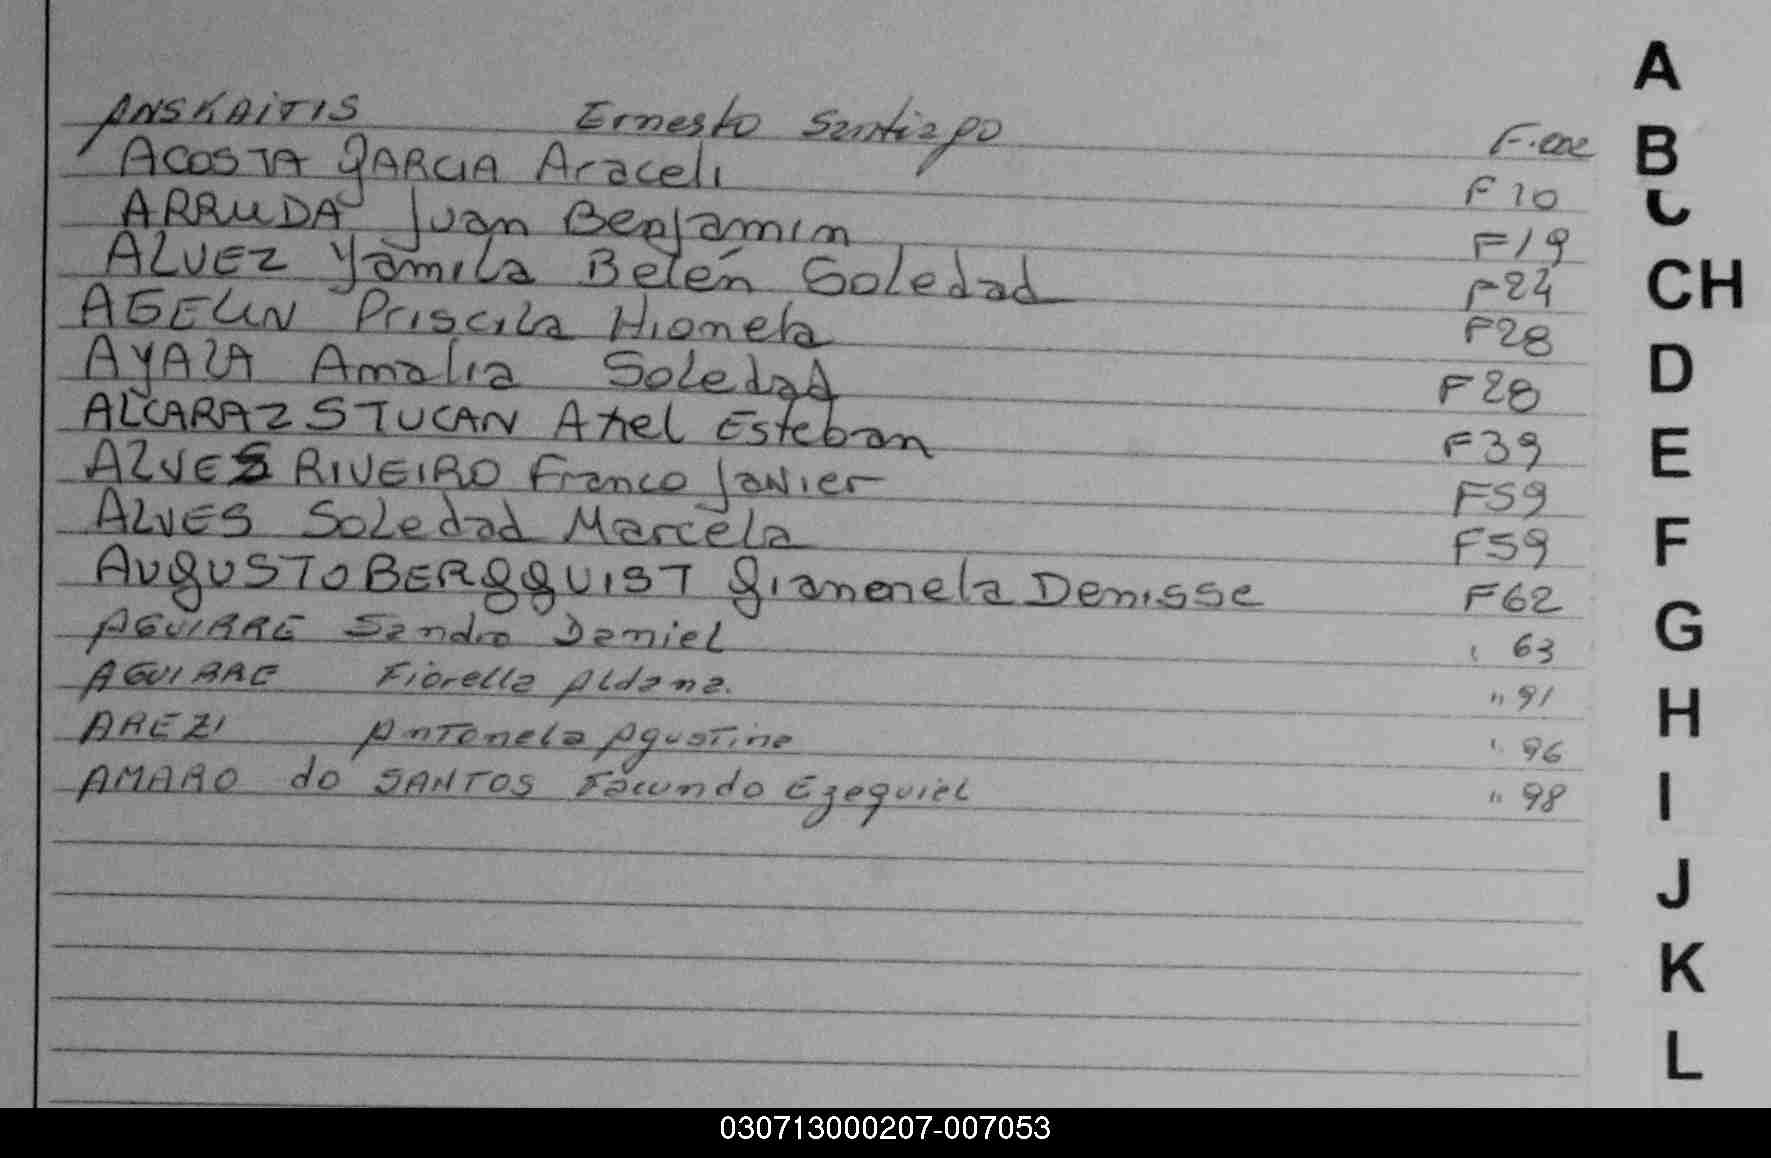 A
ANSKAITIS Ernesto Santiago
B
ACOSTA GARCIA Araceli F 10
C
ARRUDA Juan Benjamin F19
CH
ALVEZ Yamila Belén Soledad F24
Priscila F28
D
AYALA Amalia Soledad F28
ALCARAZ STUCAN Axel Esteban F39
E
ALVES RIVEIRO Franco Javier F59
F
ALVES Soledad Marcela F59
AUGUSTO BERGQUIST Denisse F62
G
AGUIRRE Sandro Daniel 63
AGUIRRE Fiorella Aldana. " 91
H
AREZI Antonela Agustina " 96
I
AMARO do SANTOS Facundo Ezequiel " 98
J
K
L
030713000207-007053